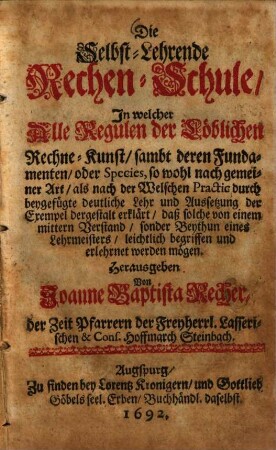 Die
Selbst-Lehrende
Rechen-Schule/
In welcher
Alle Regulen der Löblichen
Rechne-Kunst/ sambt deren Funda-
menten/ oder Species, so wohl nach gemei-
ner Art/ als nach der Welschen Practic durch
beygefügte deutliche Lehr und Aussetzung der
Exempel dergestalt erklärt/ daß solche von einem
mittern Verstand/ sonder Beythun eines
Lehrmeisters/ leichtlich begriffen und
erlehrnet werden mögen.
Herausgeben
Von
Joanne Baptista Recher,
der Zeit Pfarrern der Freyherrl. Lasseri-
schen & Cons. Hoffmarch Steinbach.
Augspurg/
Zu finden bey Lorentz Kronigern/ und Gottlieb
Göbels seel. Erben/ Buchhändl. daselbst.
1692.